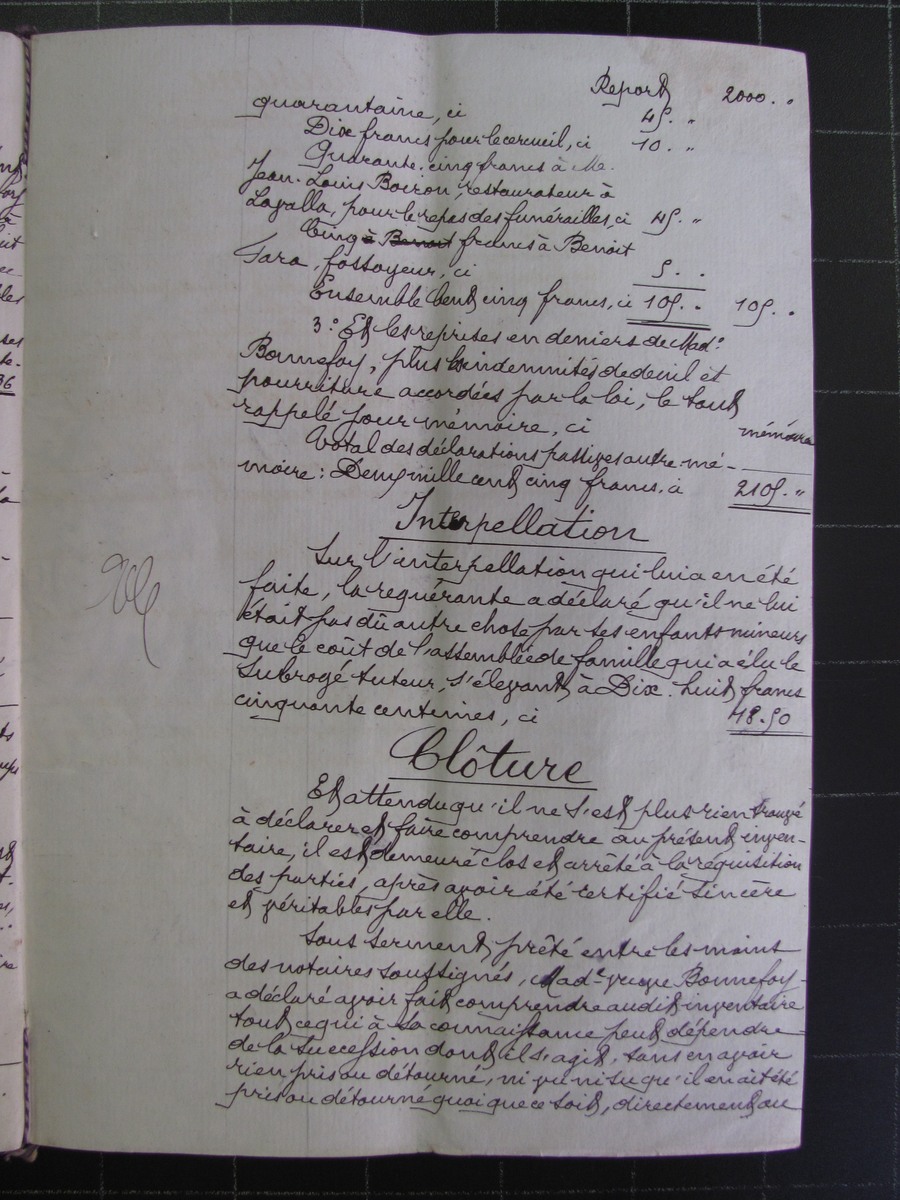 Report 2000. "
quarantaine, ci 45. "
Dix francs pour le cercueil, ci 10. "
Quarante-cinq francs à Me.
Jean-Louis Boiron, restaurateur à
Lagalla, pour le repas des funérailles, ci 45. "
Cinq à Benoit francs à Benoit
Tara, fossoyeur, ci 5. .
Ensemble Cent cinq francs, ci 105. . 105. .
3° Et les reprises en deniers de Made
Bonnefoy, plus les indemnités de deuil et
nourriture accordées par la loi, le tout
rappelé pour mémoire, ci mémoire
Total des déclarations passives outre mé-
moire : Deux mille cent cinq francs, ci 2105. "
Interpellation
Sur l'interpellation qui lui a en été
faite, la requérante a déclaré qu'il ne lui
était pas dû autre chose par ses enfants mineurs
que le coût de l'assemblée de famille qui a élu le
Subrogé tuteur, s'élevant à Dix-huit francs
cinquante centimes, ci 18.50
Clôture
Et attendu qu'il ne s'est plus rien trouvé
à déclarer et faire comprendre au présent inven-
taire, il est demeuré clos et arrêté à la réquisition
des parties, après avoir été certifié sincère
et véritables par elle.
Sous serment prêté entre les mains
des notaires soussignés, Made veuve Bonnefoy
a déclaré avoir fait comprendre audit inventaire
tout ce qui à sa connaissance peut dépendre
de la succession dont il s'agit, sans en avoir
rien pris ou détourné, ni vu ni su qu'il en ait été
pris ou détourné quoique ce soit, directement ou